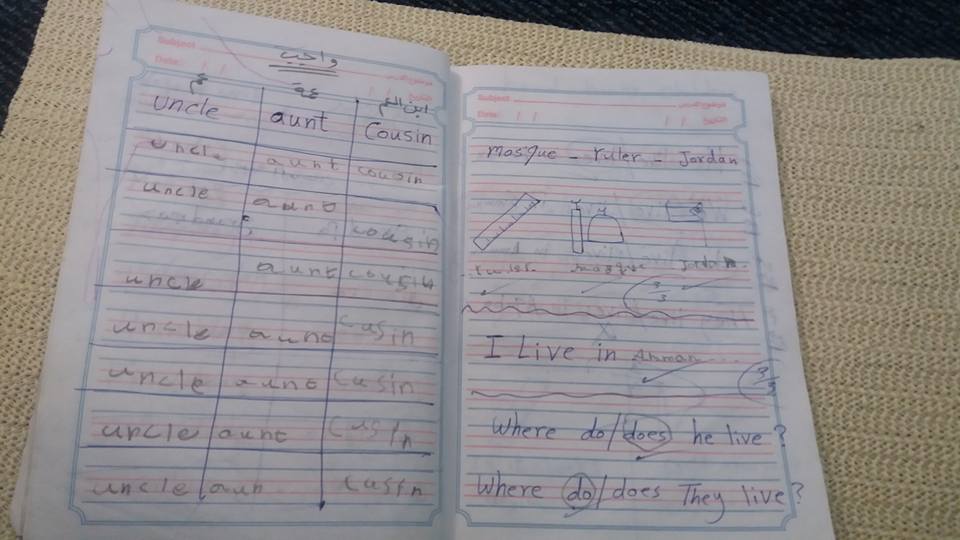 Subject
واجب
Date:
عم عمة ابن العم
uncle aunt Cousin
uncle aunt cousin
uncle aunt
cousin
uncle aunt cousin
uncle aunt Cusin
uncle aunt Cusin
uncle aunt Cusin
uncle aun Cusin
Subject
Date: التاريخ
mosque - ruler - Jordan
ruler mosque Jordan
3/3
I Live in Amman
3/3
Where do/does he live?
Where do/does They live?